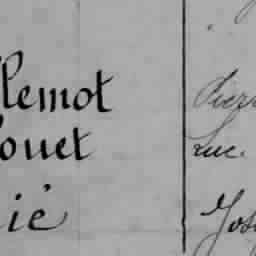 lemot
ouet
ié
Pierr
Luc.
Jos